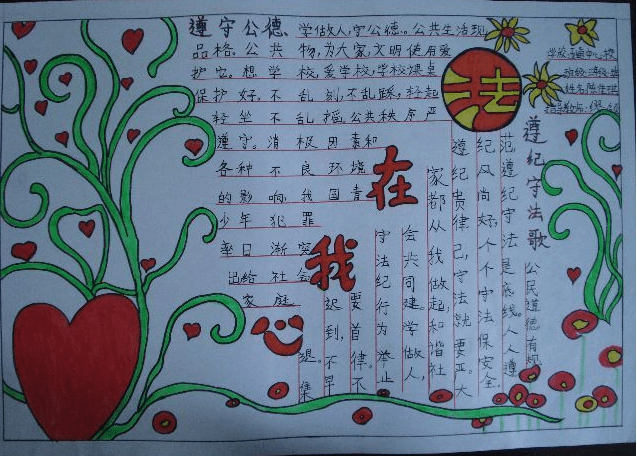 遵守公德、学做人,守公德。公共生活现
品格。公共物,为大家,文明使用爱
护它。想学校,爱学校,学校课桌
保护好。不乱刻,不乱踩,轻起
轻坐不乱搖。公共秩序严
遵守。消极因素和
各种不良环境
的影响,我国青
少年犯罪
率日渐突
出给社会
家庭
法
在
我
心
学校:
班级:
姓名:
遵纪守法歌
公民道德有规
范,遵纪守法是底线。人人遵
纪风尚好,个个守法保安全。
遵纪贵律己,守法就要正。大
家都从我做起,和谐社
会共同建。学做人,
守法纪,行为举止
要首律。不
迟到,不早
退。集